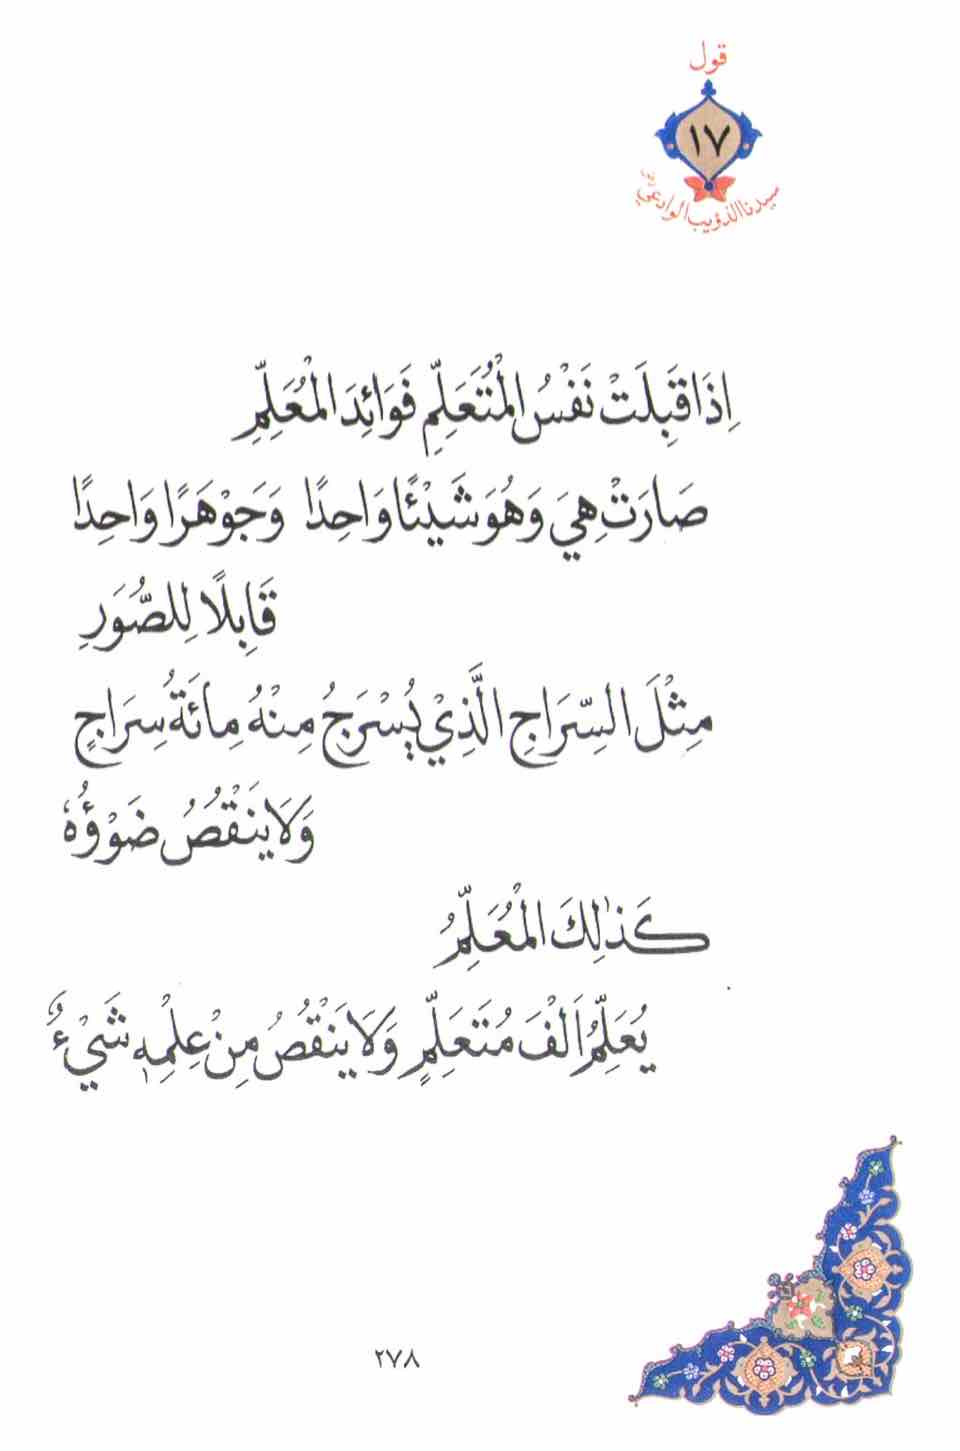 قول
١٧
سيدنا الذؤيب الوادعي رض
اِذَا قَبِلَتْ نَفْسُ الْمُتَعَلِّمِ فَوَائِدَ الْمُعَلِّمِ
صَارَتْ هِيَ وَهُوَ شَيْئًا وَاحِدًا وَجَوْهَرًا وَاحِدًا
قَابِلًا لِلصُّوَرِ
مِثْلَ السِّرَاجِ الَّذِيْ يُسْرَجُ مِنْهُ مِائَةُ سِرَاجٍ
وَلَا يَنْقُصُ ضَوْؤُهٗ
كَذٰلِكَ الْمُعَلِّمُ
يُعَلِّمُ اَلْفَ مُتَعَلِّمٍ وَلَا يَنْقُصُ مِنْ عِلْمِهٖ شَيْءٌ
٢٧٨